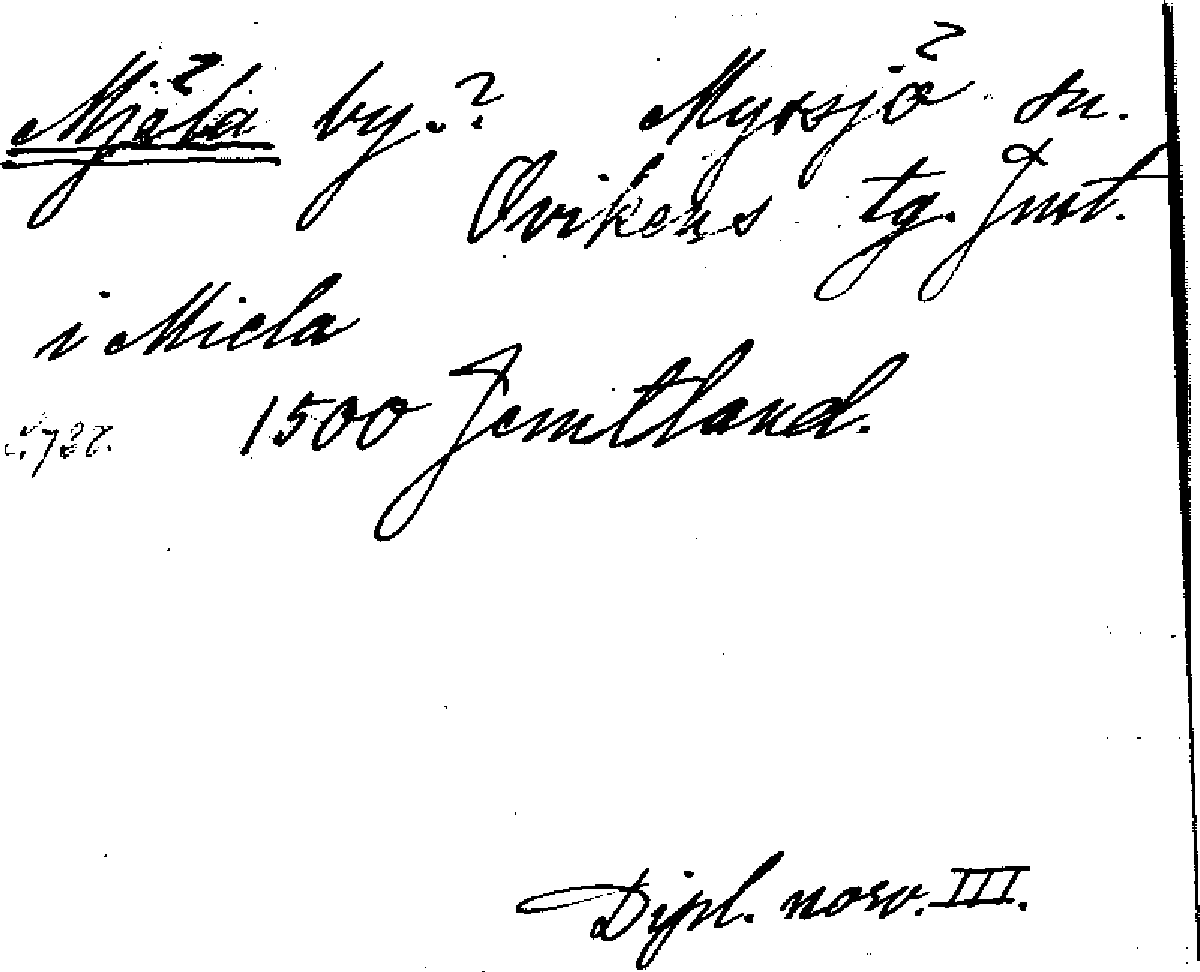 Mjäla by.? Myrsjö sn.
Ovikens tg. Jmt.
i Miela
1500 Jemtland.
Dipl. norv. III.